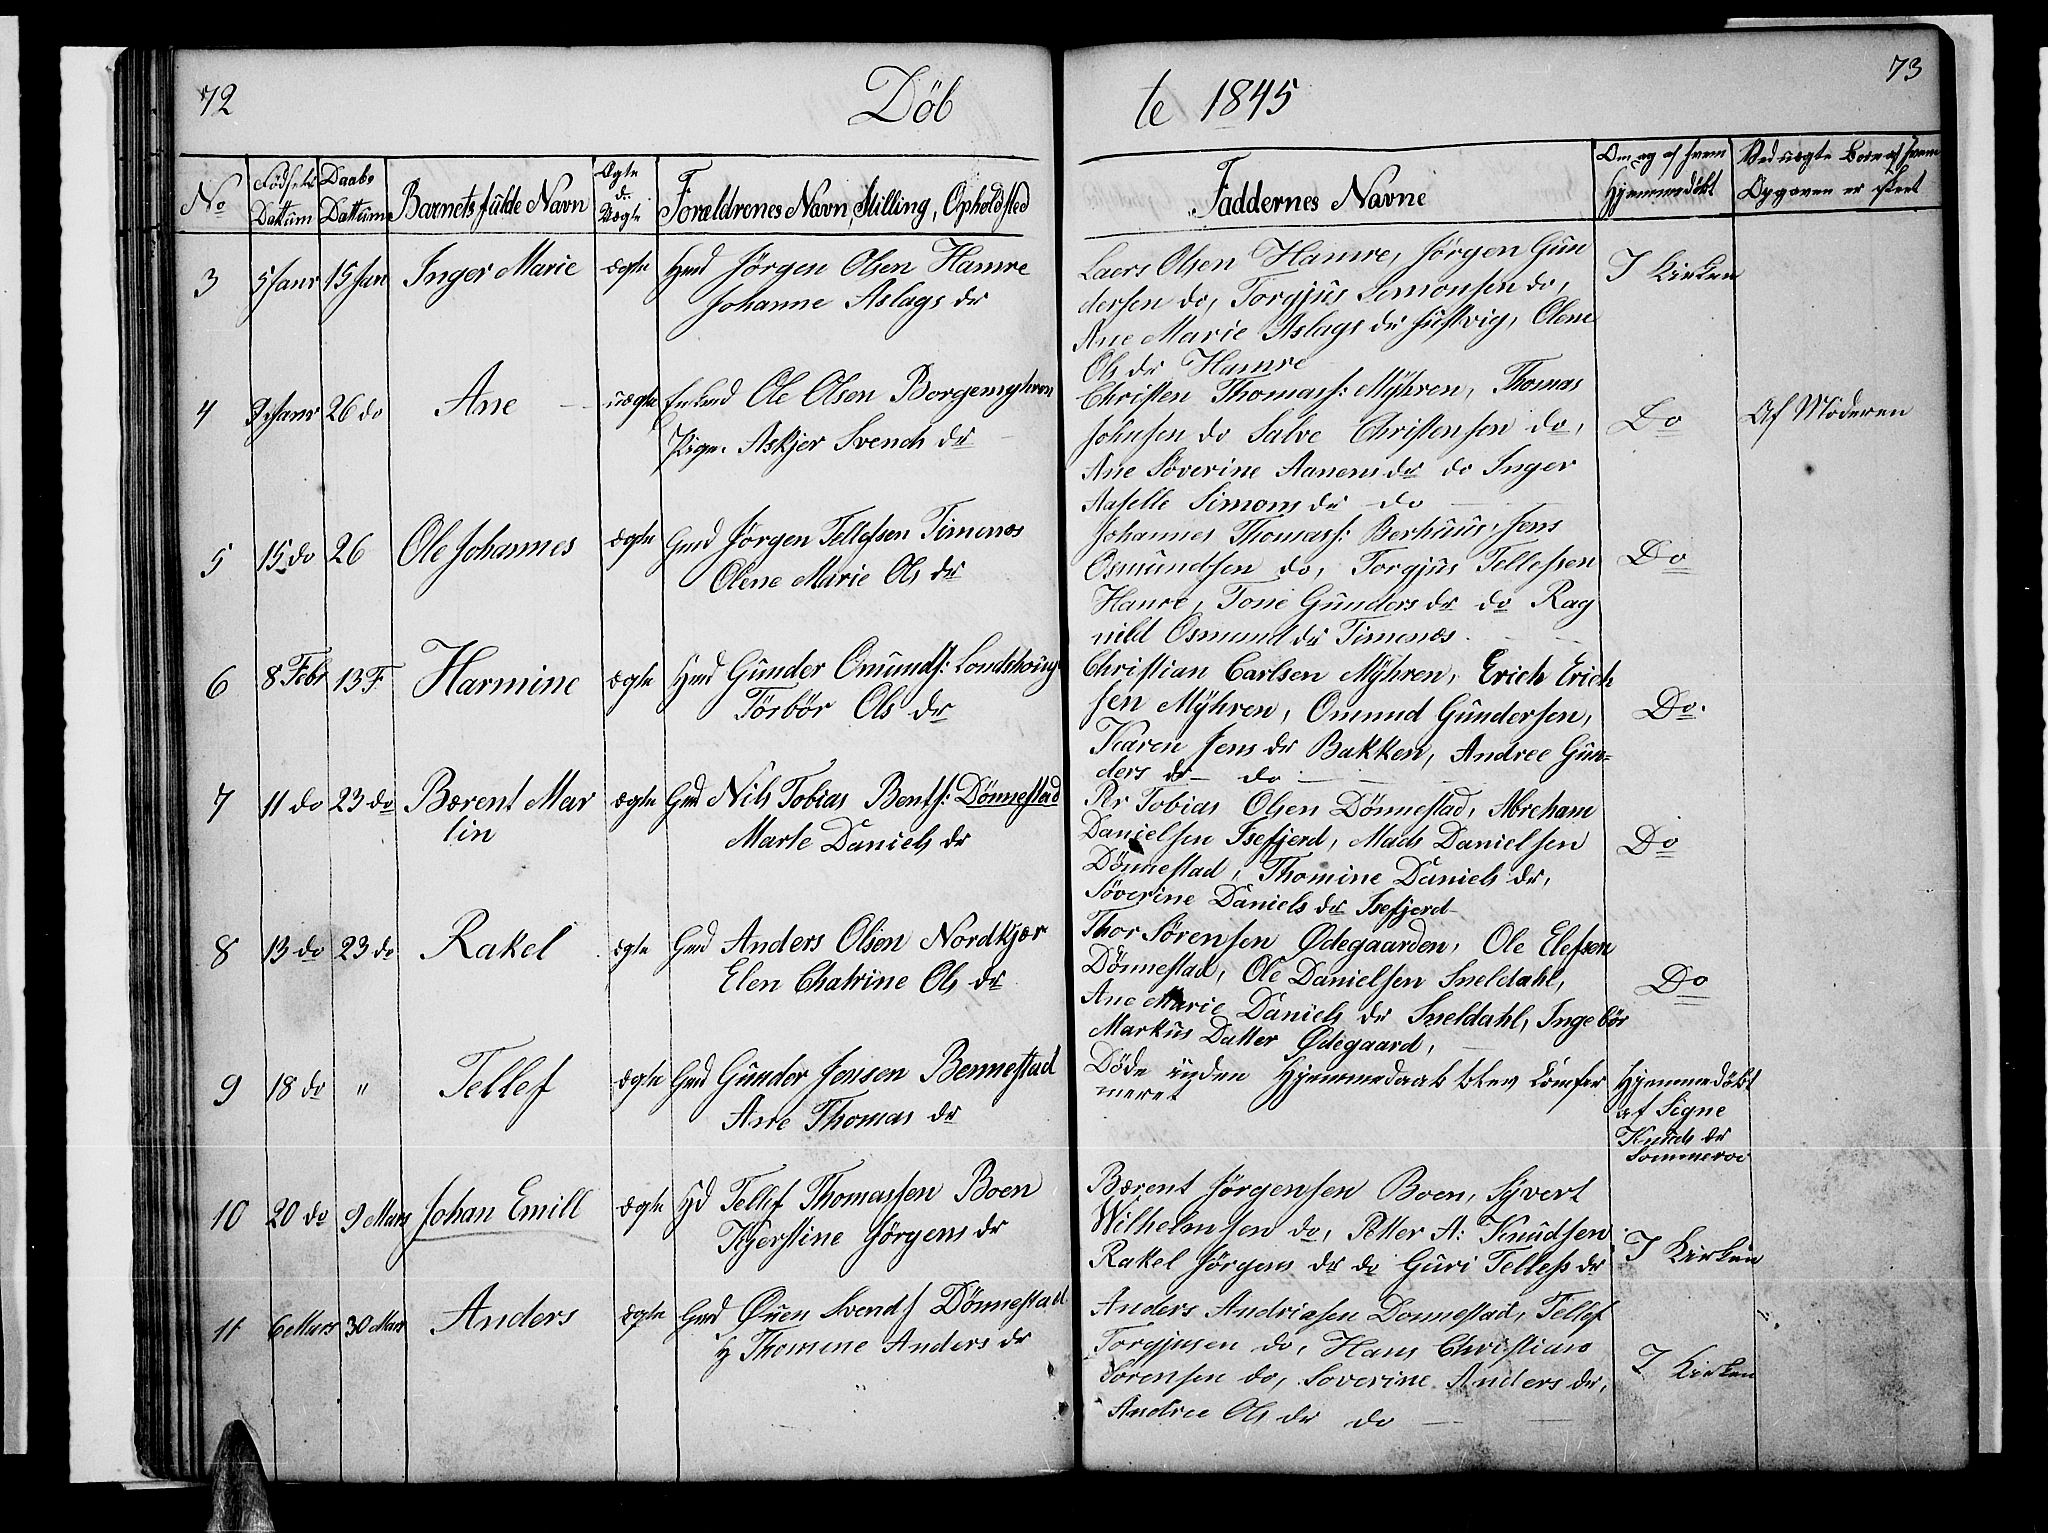 72
Döb
te 1845
73
No
Födsels Dattum
Daabs Dattum
Barnets fulde Navn
Ægte el. Uægte
Forældrenes Navn, Stilling, Opholdsted
Faddernes Navne
Om og af hvem Hjemmedöbt
Ved uægte Born af hvem Opgaven er skeet
3 5 Janr 15 Jan Inger Marie ægte Hmd Jörgen Olsen Hamre
Johanne Aslags dr
Laers Olsen Hamre, Jörgen Gun
dersen do, Torgjus Simonsen do,
Ane Marie Aslags dr Justvig, Olene
Ols dr Hamre
I Kirken
4 Janr 26 do Ane uægte Enkmd Ole Olsen Borgemyhren
Pige Askjer Svends dr
Christen Thomass: Mÿhren, Thomas
Johnsen do Salve Christensen do,
Ane Söverine Aanens dr do Inger
Aaselle Simons dr do
Do
Af Moderen
5 15 do 26 Ole Johannes ægte Gmd Jörgen Tellefsen Timenæs
Olene Marie Ols dr
Johannes Thomass: Berhuus, Jens
Osmundsen do, Torgjus Tellefsen
Hamre, Tone Gunders dr do Rag
nild Osmund dr Timenæs
Do
6 8 Febr 13 F Harmine ægte Hmd Gunder Omunds: Londshoug
Törbör Ols dr
Christian Carlsen Mÿhren, Erich Erich
sen Mÿhren, Omund Gundersen,
Karen Jens dr Bakken, Andree Gun=
ders dr do
Do.
7 11 do 23 do Bærent Mar
tin
ægte Gmd Nils Tobias Bents: Dönnestad
Marte Daniels dr
Per Tobias Olsen Dönnestad, Abreham
Danielsen Isefjerd, Mads Danielsen
Dönnestad, Thomine Daniels dr,
Söverine Daniels dr Isefjerd
Do
8 13 do 23 do Rakel ægte Gmd Anders Olsen Nordkjær
Elen Chatrine Ols dr
Thor Sörensen Ødegaarden, Ole Elefsen
Dönnestad, Ole Danielsen Sneldahl,
Ane Marie Daniels dr Sneldahl, Ingebör
Markus Datter Ødegaard,
Do
9 18 do " Tellef ægte Gmd Gunder Jensen Bennestad
Ane Thomas dr
Döde inden Hjemmedaab blev Comfer
meret
Hjemmedöbt
af Signe
Knuds dr
10 20 do 9 Mars Johan Emill ægte Hd Tellef Thomassen Boen
Kjerstine Jörgens dr
Bærent Jörgensen Boen, Syvert
Wilhelmsen do, Petter A: Knudsen
Rakel Jörgens dr do Guri Tellefs dr
I Kirken
11 6 Mars 30 Mars Anders ægte Gmd Øuen Svends Dönnestad
H Thomine Anders dr
Anders Andriasen Donnestad, Tellef
Torgjusen do, Hans Christians
Sorensen do, Soverine Anders dr,
Andree Ols dr do
I Kirken